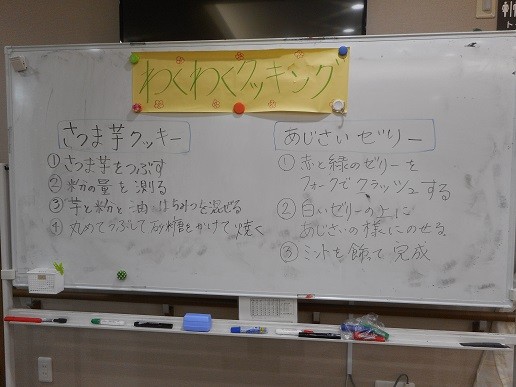 わくわくクッキング
さつま芋クッキー
① さつま芋をつぶす
② 粉の量を測る
③ 芋と粉と油 はちみつを混ぜる
④ 丸めてつぶして砂糖をかけて焼く
あじさいゼリー
① 赤と緑のゼリーを
フォークでクラッシュする
② 白いゼリーの上に
あじさいの様にのせる
③ ミントを飾って完成